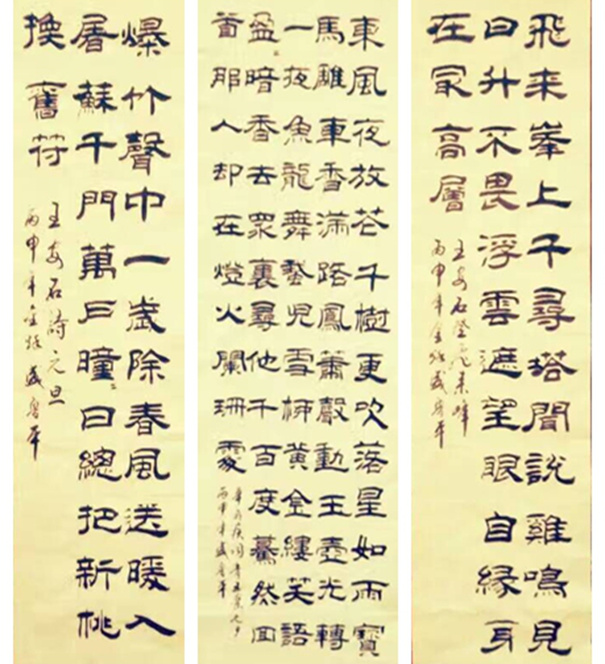 飛来峯上千尋塔聞說雞鳴見
日升不畏浮雲遮望眼自緣身
在冣高層
王安石登飛来峰
丙申年金秋盛
東風夜放花千樹更吹落星如雨寶
馬雕車香滿路鳳簫聲動玉壺光轉
一夜魚龍舞蛾兒雪柳黃金縷笑語
盈々暗香去眾裏尋他千百度驀然回
首那人却在燈火闌珊處
辛弃疾词青玉案元夕
丙申年盛
爆竹聲中一歲除春風送暖入
屠蘇千門萬戶曈々日總把新桃
換舊符
王安石詩元旦
丙申年金秋盛